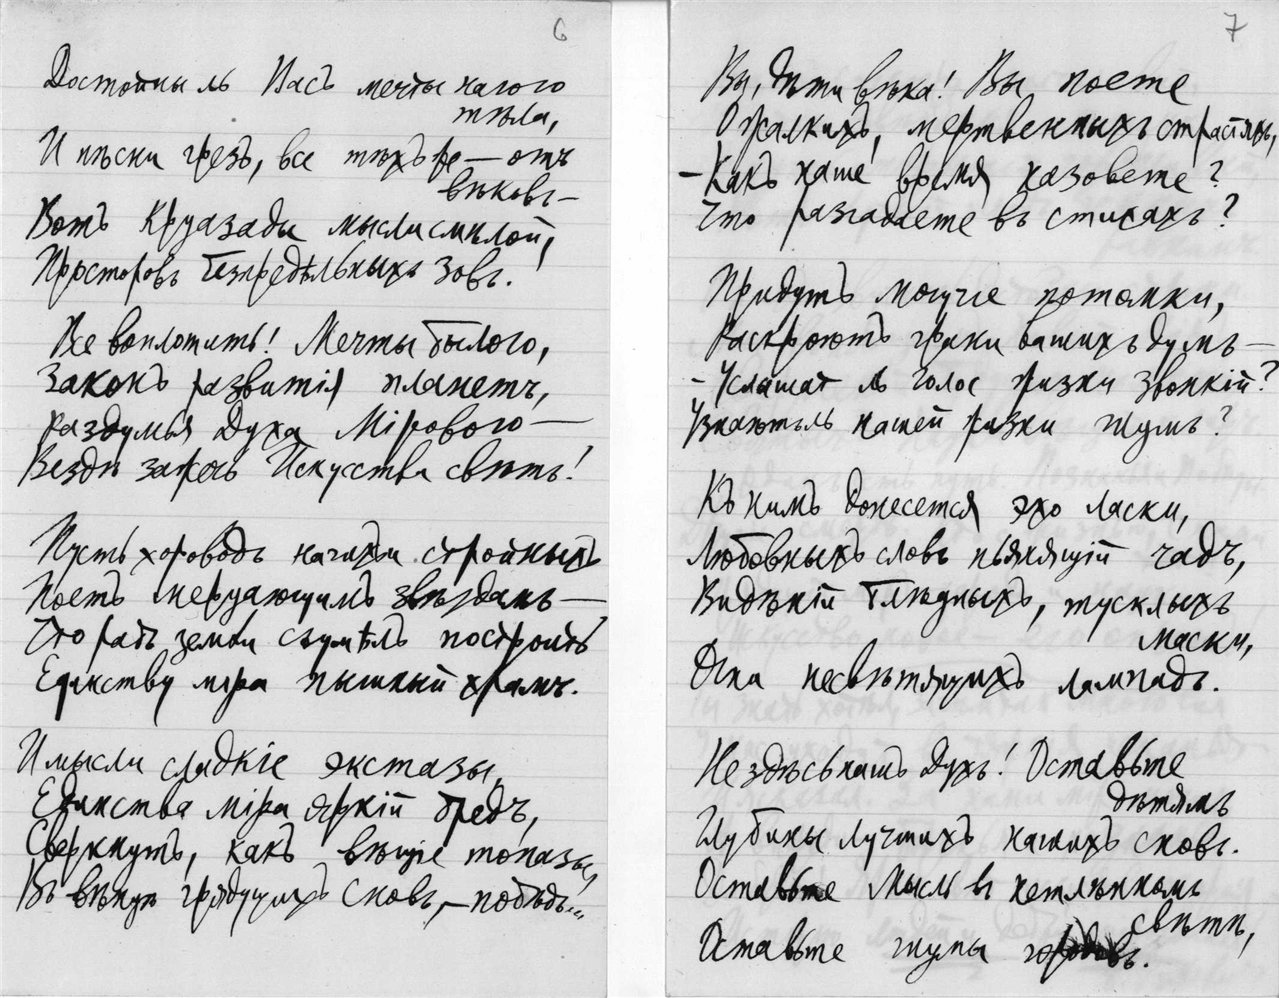 6
Достойны ль Васъ мечты нагого
тѣла,
И пѣсни грезъ, все тѣхъ же — отъ
вѣковъ —
Вотъ Круазады мысли смѣлой,
Просторовъ безпредѣльныхъ зовъ!
Все воплотить! Мечты былого,
Законъ развитія планетъ,
Раздумья Духа Мірового —
Вездѣ зажечь Искусства свѣтъ!
Пусть хороводъ нагихъ стройныхъ
Поетъ мерцающимъ звѣздамъ —
Что рабъ земли съумѣлъ построить
Единству міра пышный храмъ.
И мысли сладкіе экстазы,
Единства міра яркій бредъ,
Сверкнутъ, какъ вѣщіе топазы,
Въ вѣнцѣ грядущихъ сновъ, — побѣдъ...
7
Вы, дѣти вѣка! Вы поете
О жалкихъ, мертвенныхъ страстяхъ,
— Какъ наше время назовете?
Что разгадаете въ стихахъ?
Придутъ могучіе потомки,
Раскроютъ грани вашихъ думъ —
— Услышат ль голос жизни звонкій?
Узнаютъ ль нашей жизни шумъ?
Къ нимъ донесется эхо ласки,
Любовныхъ словъ пьянящій чадъ,
Видѣній блѣдныхъ, тусклыхъ
маски,
Огни несвѣтящихъ лампадъ.
Не здѣсь нашъ Духъ! Оставьте
дѣтямъ
Глубины лучшихъ нашихъ сновъ.
Оставьте Мысль въ нетлѣнномъ
свѣтѣ,
Оставьте шумы городовъ.